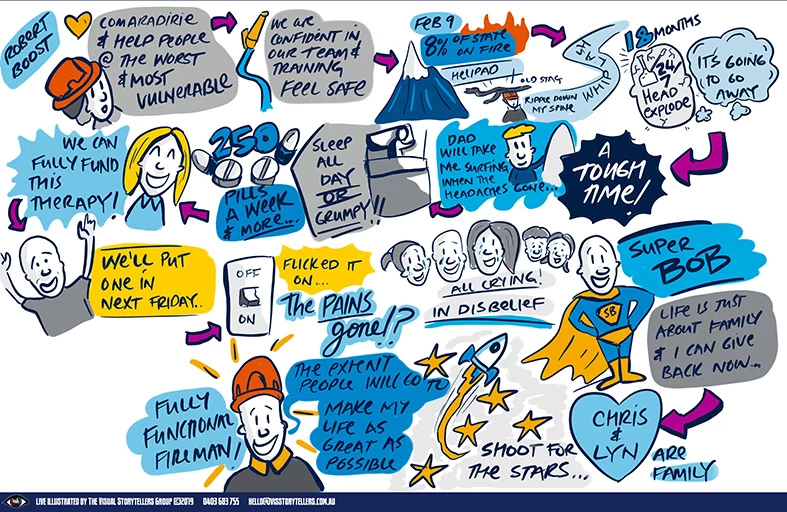 ROBERT
BOOST
COMARADIRIE
& HELP PEOPLE
@ THE WORST
& MOST
VULNERABLE
WE ARE
CONFIDENT IN
OUR TEAM &
TRAINING
FEEL SAFE
FEB 9
8% OF STATE
ON FIRE
HELIPAD
OLD STAG
RIPPLE DOWN
MY SPINE
WHIPLASH
18 MONTHS
24/7
HEAD
EXPLODE
IT'S GOING
TO GO
AWAY
WE CAN
FULLY FUND
THIS
THERAPY!
250
PILLS
A WEEK
& MORE...
SLEEP
ALL
DAY
OR
GRUMPY!!
DAD
WILL TAKE
ME SURFING
WHEN THE
HEADACHES GONE...
A
TOUGH
TIME!
WE'LL PUT
ONE IN
NEXT FRIDAY..
OFF
ON
FLICKED IT
ON....
THE PAINS
gone!?
ALL CRYING!
IN DISBELIEF
SUPER
BOB
SB
LIFE IS JUST
ABOUT FAMILY
& I CAN GIVE
BACK NOW...
FULLY
FUNCTIONAL
FIREMAN!
THE EXTENT
PEOPLE WILL GO TO
MAKE MY
LIFE AS
GREAT AS
POSSIBLE
SHOOT FOR
THE STARS...
CHRIS
&
LYN
ARE
FAMILY
LIVE ILLUSTRATED BY THE VISUAL STORYTELLERS GROUP ©2019 0403 683 755 HELLO@VISSTORYTELLERS.COM.AU